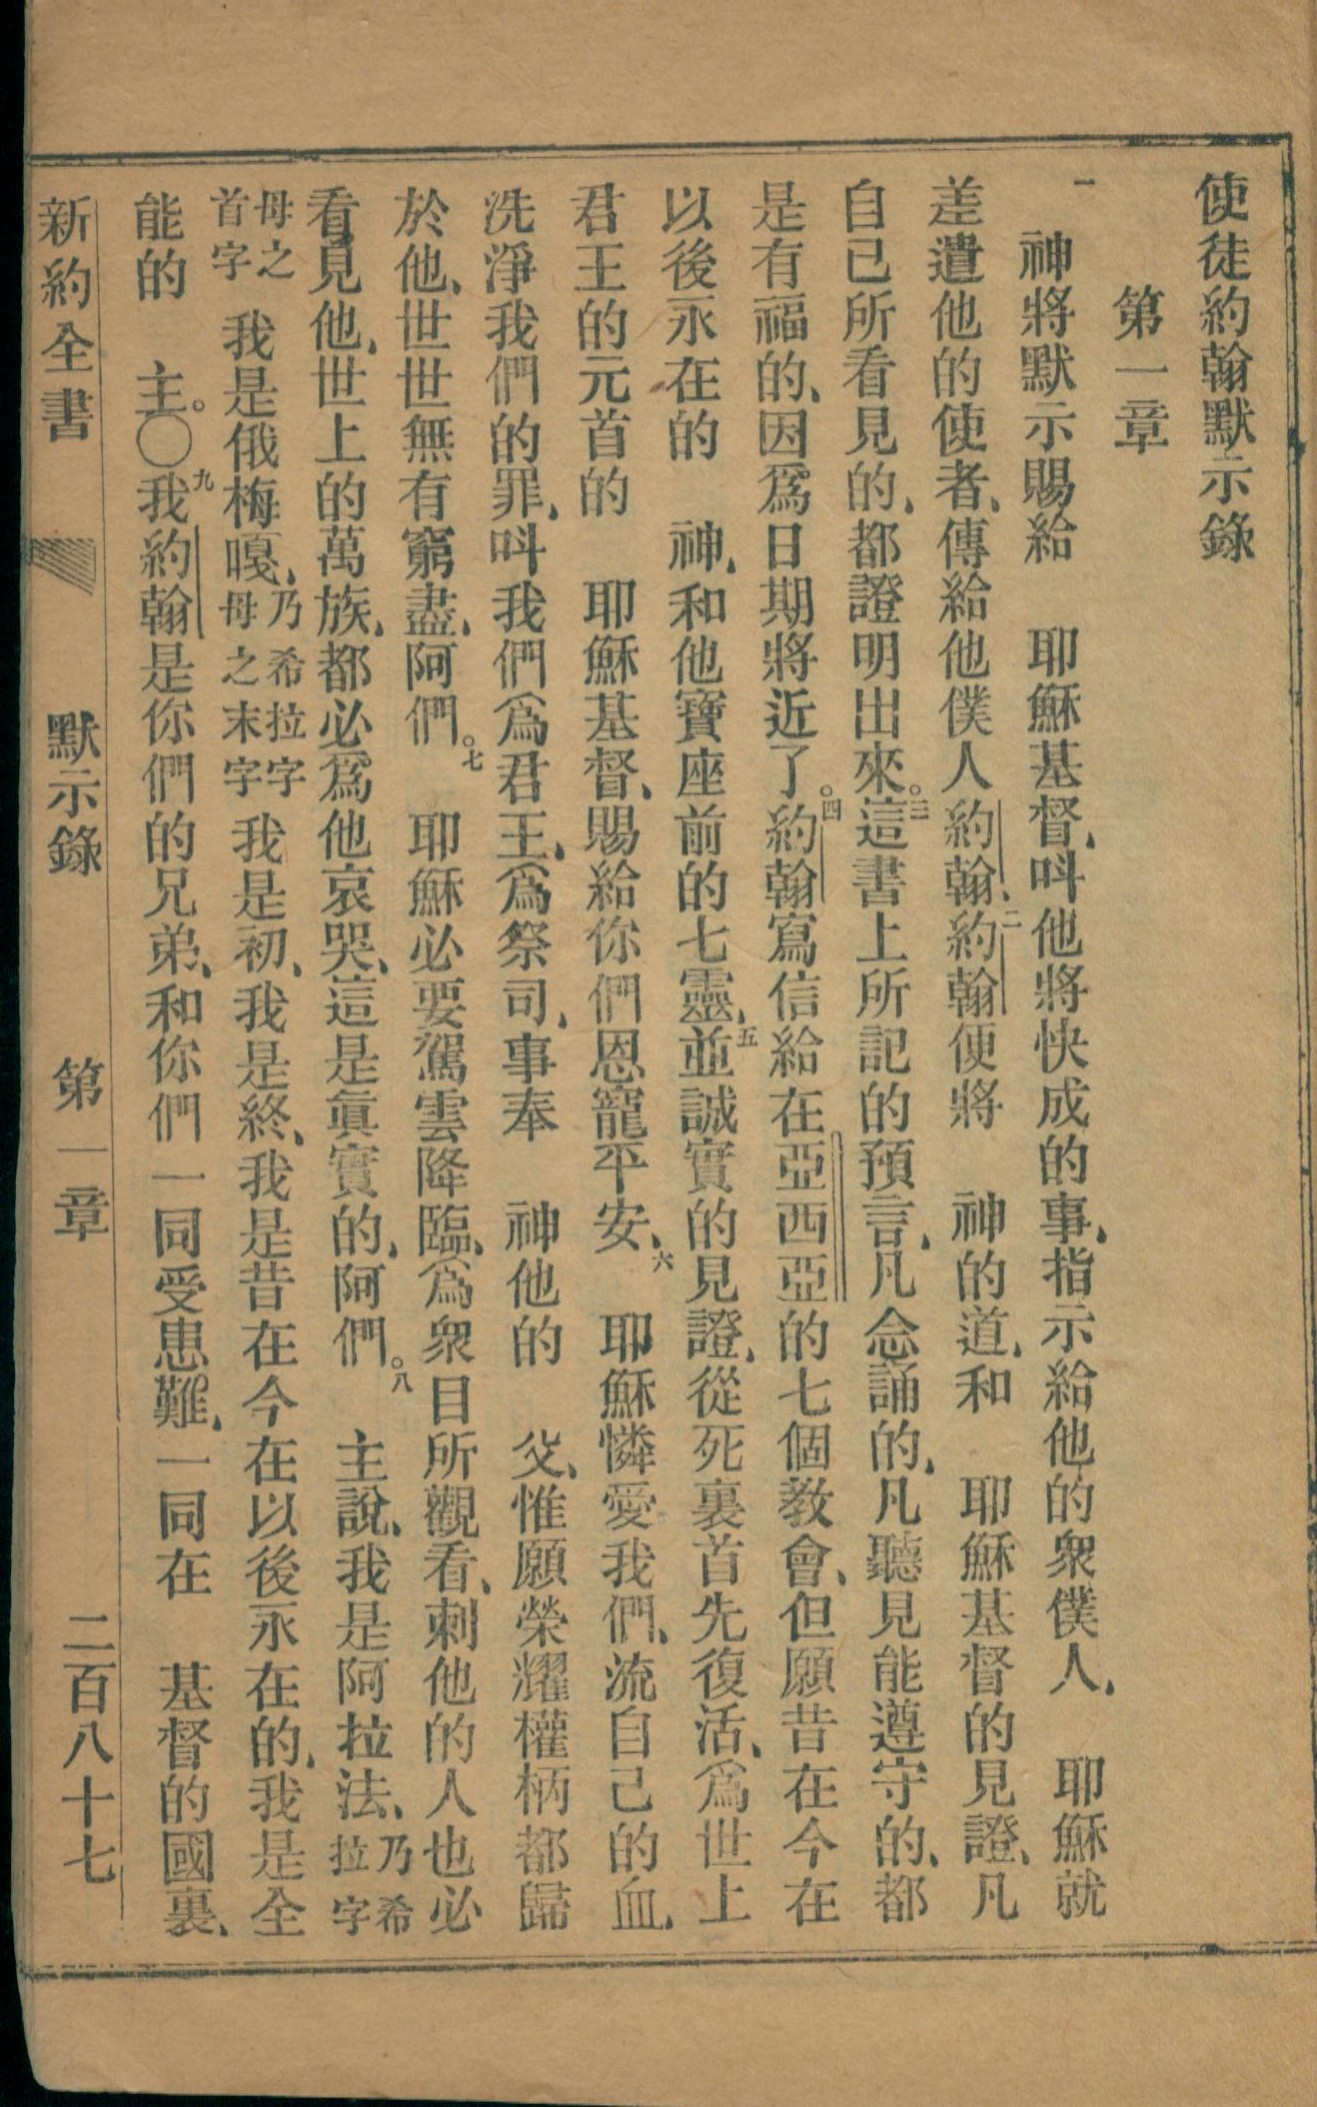 使徒約翰默示錄
第一章
一　神將默示賜給　耶穌基督、呌他將快成的事、指示給他的衆僕人、　耶穌就
差遣他的使者、傳給他僕人約翰、二約翰便將　神的道、和　耶穌基督的見證、凡
自己所看見的、都證明出來。三這書上所記的預言、凡念誦的、凡聽見能遵守的、都
是有福的、因爲日期將近了。四約翰寫信給在亞西亞的七個教會、但願昔在今在
以後永在的　神、和他寶座前的七靈、五並誠實的見證、從死裏首先復活、爲世上
君王的元首的　耶穌基督、賜給你們恩寵平安、六　耶穌憐愛我們、流自己的血、
洗淨我們的罪、呌我們爲君王、爲祭司、事奉　神他的　父、惟願榮耀權柄都歸
於他、世世無有窮盡、阿們。七　耶穌必要駕雲降臨、爲衆目所觀看、刺他的人也必
看見他、世上的萬族、都必爲他哀哭、這是眞實的、阿們。八　主說、我是阿拉法、乃希拉字
母之首字　我是俄梅嘎、乃希拉字母之末字　我是初、我是終、我是昔在今在以後永在的、我是全
能的　主。〇九我約翰是你們的兄弟、和你們一同受患難、一同在　基督的國裏、
新約全書　默示錄　第一章　二百八十七